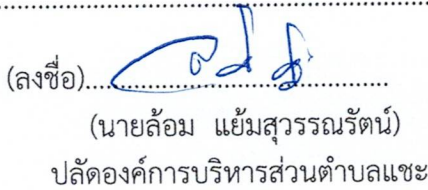 (ลงชื่อ)
(นายล้อม แย้มสุวรรณรัตน์)
ปลัดองค์การบริหารส่วนตำบลแชะ